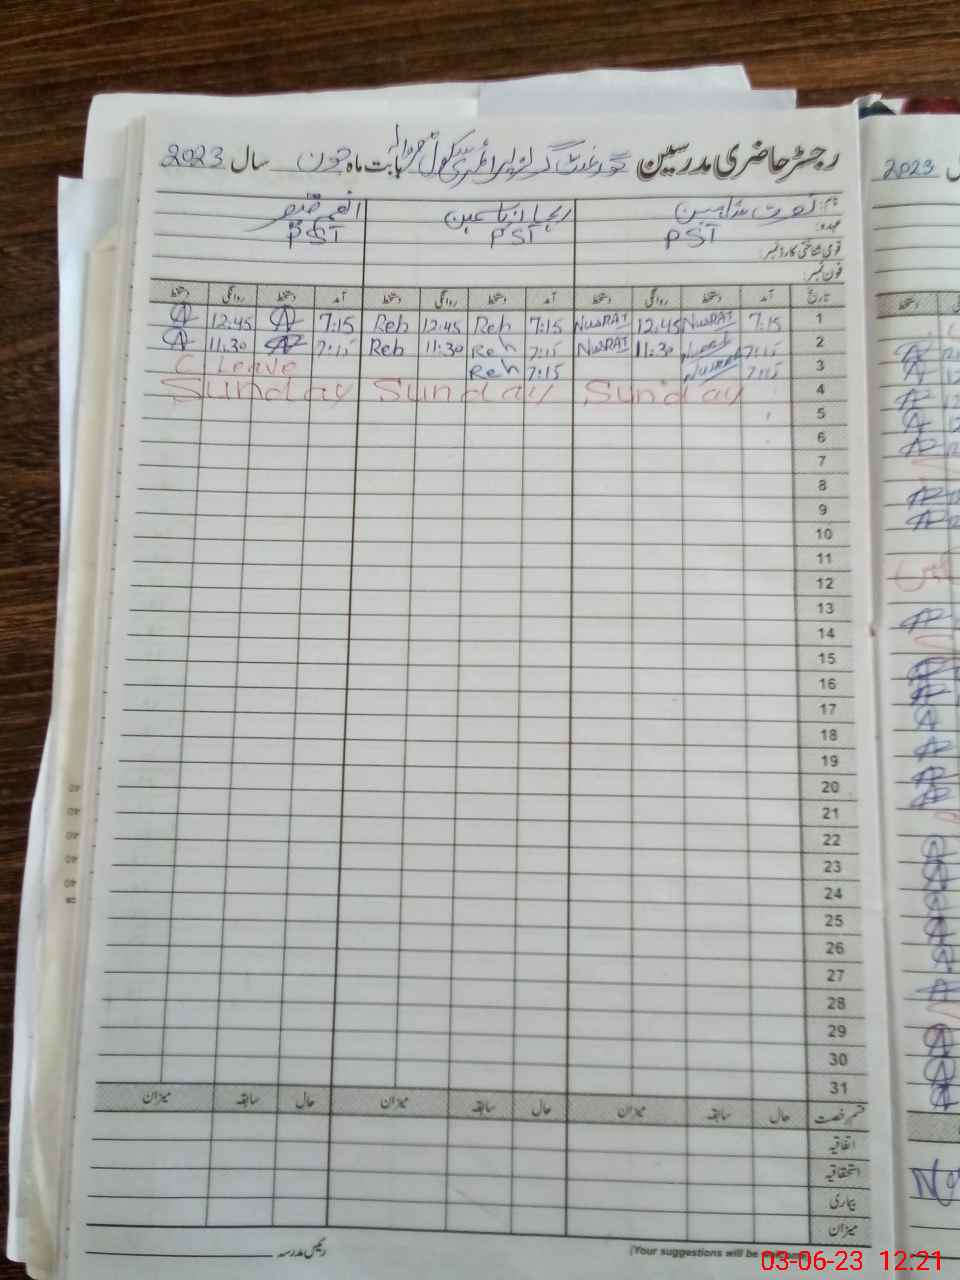 رجسٹر حاضری مدرسین گورنمنٹ گرلز پرائمری سکول بابت ماہ جون سال 2023
نام:
عہدہ: PST PST PST
قومی شناختی کارڈ نمبر:
فون نمبر:
تاریخ آمد دستخط روانگی دستخط آمد دستخط روانگی دستخط آمد دستخط روانگی دستخط
1 7:15 NusRAT 12:45 NusRAT 7:15 Reh 12:45 Reh 7:15 12:45
2 7:15 Nusrat 11:30 NusRAT 7:15 Reh 11:30 Reh 7:15 11:30
3 7:15 Nusrat 7:15 Reh C Leave
4 Sunday Sunday Sunday
5
6
7
8
9
10
11
12
13
14
15
16
17
18
19
20
21
22
23
24
25
26
27
28
29
30
31
قسم رخصت حال سابقہ میزان حال سابقہ میزان حال سابقہ میزان
اتفاقیہ
استحقاقیہ
بیماری
میزان
رئیس مدرسہ
(Your suggestions will be welcome)
2023
03-06-23 12.21